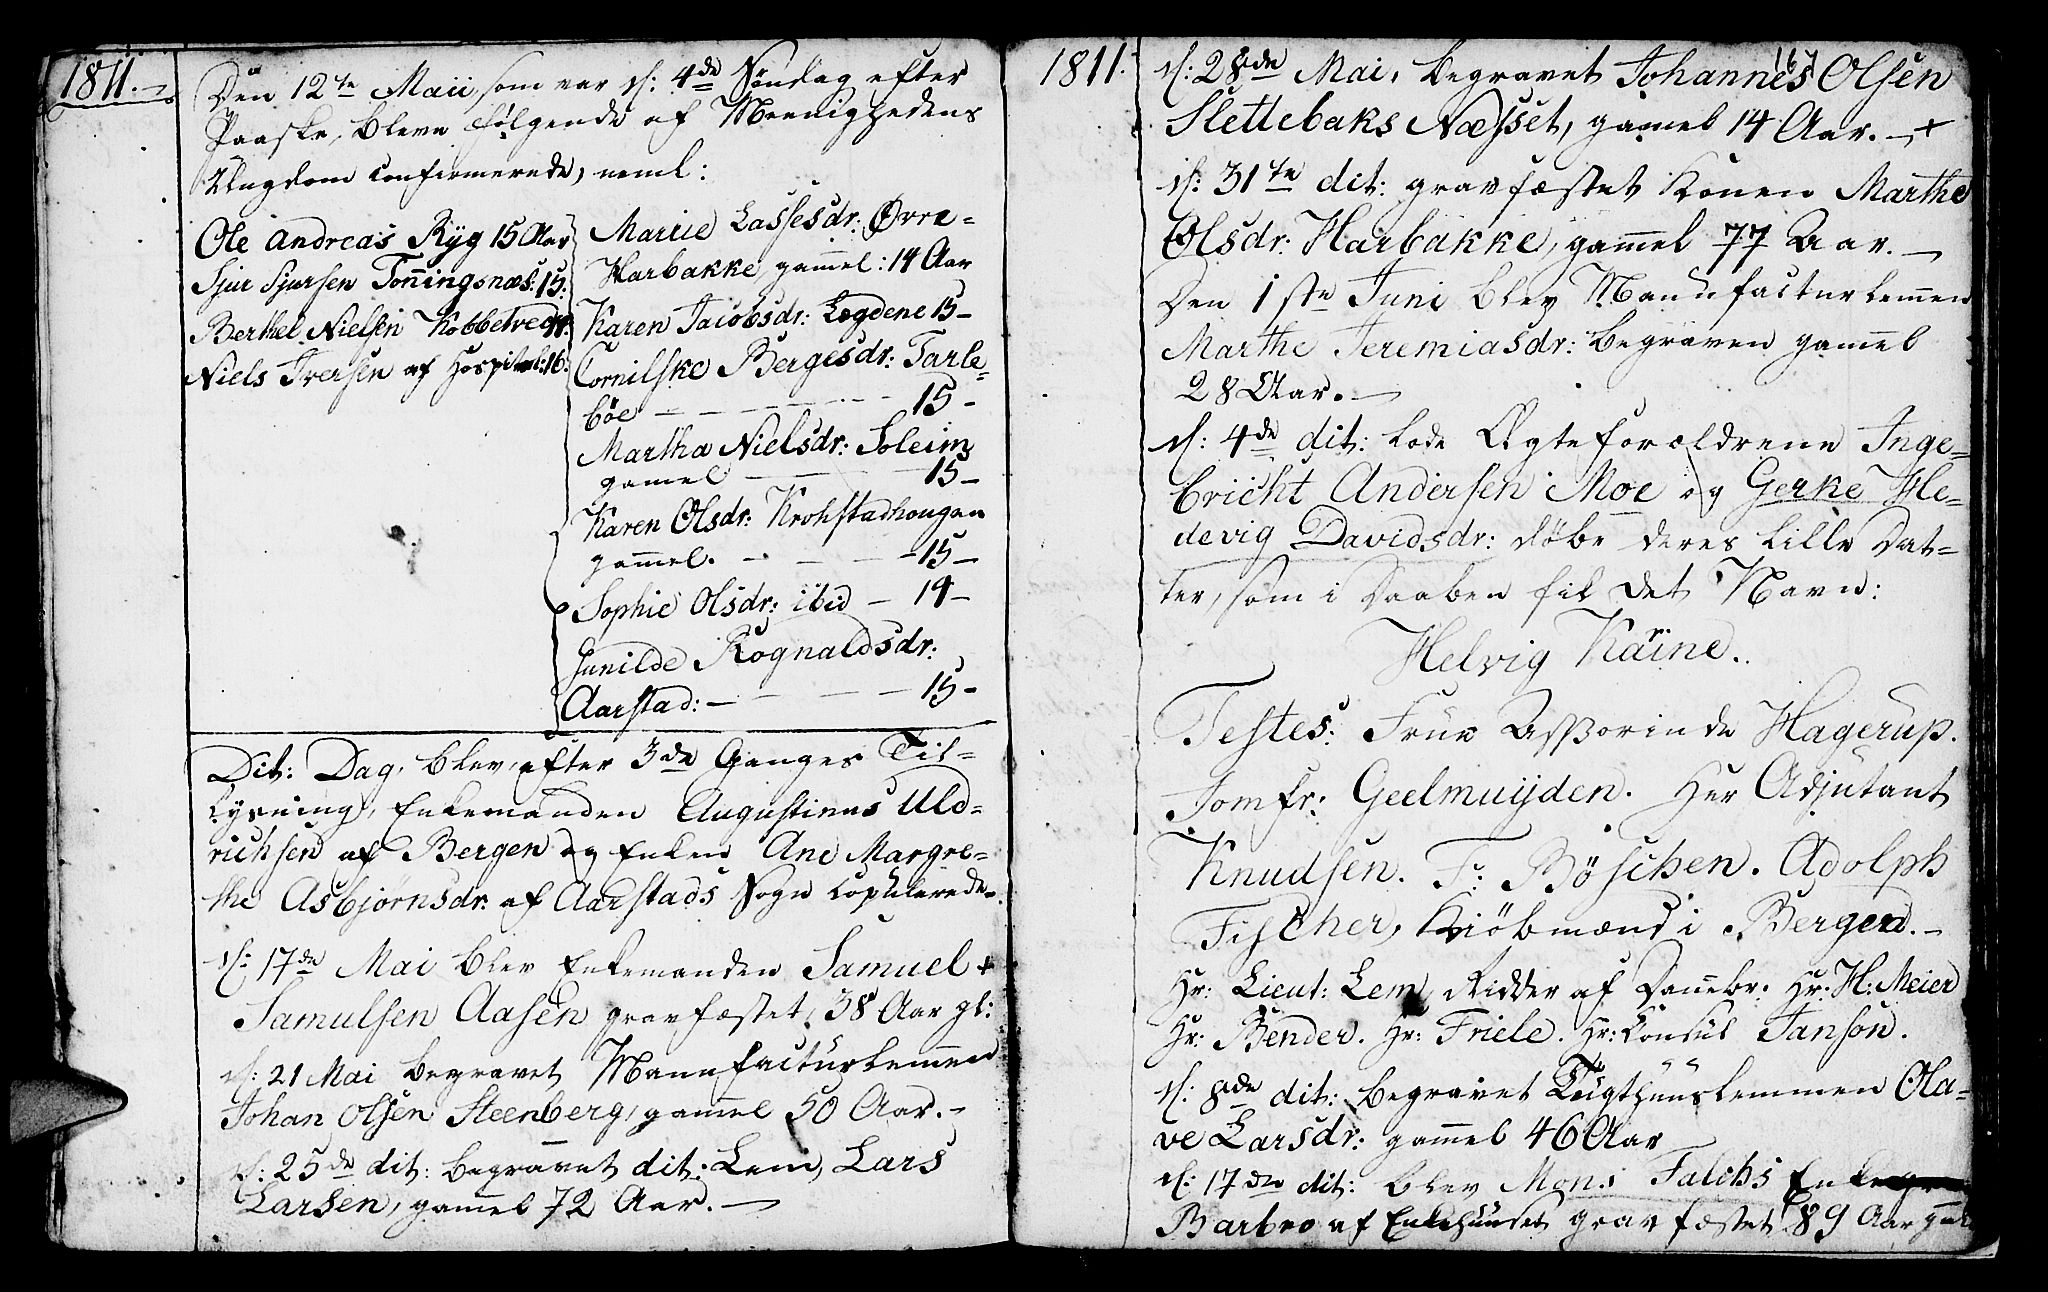 1811.
Den 12te Maii, som var d: 4de Søndag efter
Paaske, bleve følgende af Meenighedens
Ungdom confirmerede, neml:
Ole Andreas Ryg 15 Aar
Sjur Sjursen Tonningsnæs: 15.
Berthel Nielsen Kobbelvedt
Niels Iversen af Hospital: 16.
Mariie Lassesdr: Øvre-
Harbakke gamel: 14 Aar
Karen Jacobsdr: Lægdene 15 -
Cornilske Bergesdr: Tarle-
böe - - - - - 15 -
Martha Nielsdr: Soleim
gamel - - - 15 -
Karen Olsdr: Krohstadhougen
gammel. - - - 15 -
Sophie Olsdr: ibid - 14 -
Gunilde Rognaldsdr:
Aarstad: - - - - 15 -
Dit: Dag, blev efter 3de Ganges Til-
lysning, Enkemanden Augustinus Uld-
richsen af Bergen og Enken Ane Margre-
the Asbjørnsdr. af Aarstads Sogn copulerede.
d: 17de Mai blev Enkemanden Samuel +
Samulsen Aasen gravfæstet, 38 Aar gl:
d: 21 Mai begravet Manufacturlemmen
Johan Olsen Steenberg, gammel 50 Aar. -
d: 25de dit: begravet dit: Lem, Lars
Larsen, gammel 72 Aar. -
1811.
167
d: 28de Mai, begravet Johannes Olsen
Slettebaks Næsset, gamel 14 Aar. - +
d: 31te dit: gravfæstet Konen Marthe
Olsdr: Harbakke, gammel 77 Aar. -
Den 1ste Juni blev Manufacturlemmen
Marthe Jeremiasdr: begraven gamel
28 Aar. -
d: 4de dit: lode Ægteforældrene Inge-
bricht Andersen Moe og Gerke He-
devig Davidsdr: döbe deres lille Dat-
ter, som i Daaben fik det Navn:
Helvig Kaïne.
Testes: Frue Assessorinde Hagerup.
Jomfr: Geelmuijden. Herr Adjutant
Knudsen. F: Böschen. Adolph
Fischer, Kiöbmænd i Bergen. -
Hr: Lieut: Lem, Ridder af Dannebr. Hr: H: Meier
Hr: Bender. Hr: Friele. Hr: Consul Janson.
d: 8de dit: begravet Tugthuuslemmen Ola-
ve Larsdr: gammel 46 Aar
d: 17de dit: blev Mon: Falchs Enke
Barbro af Enkehuuset gravfæstet 89 Aar gml